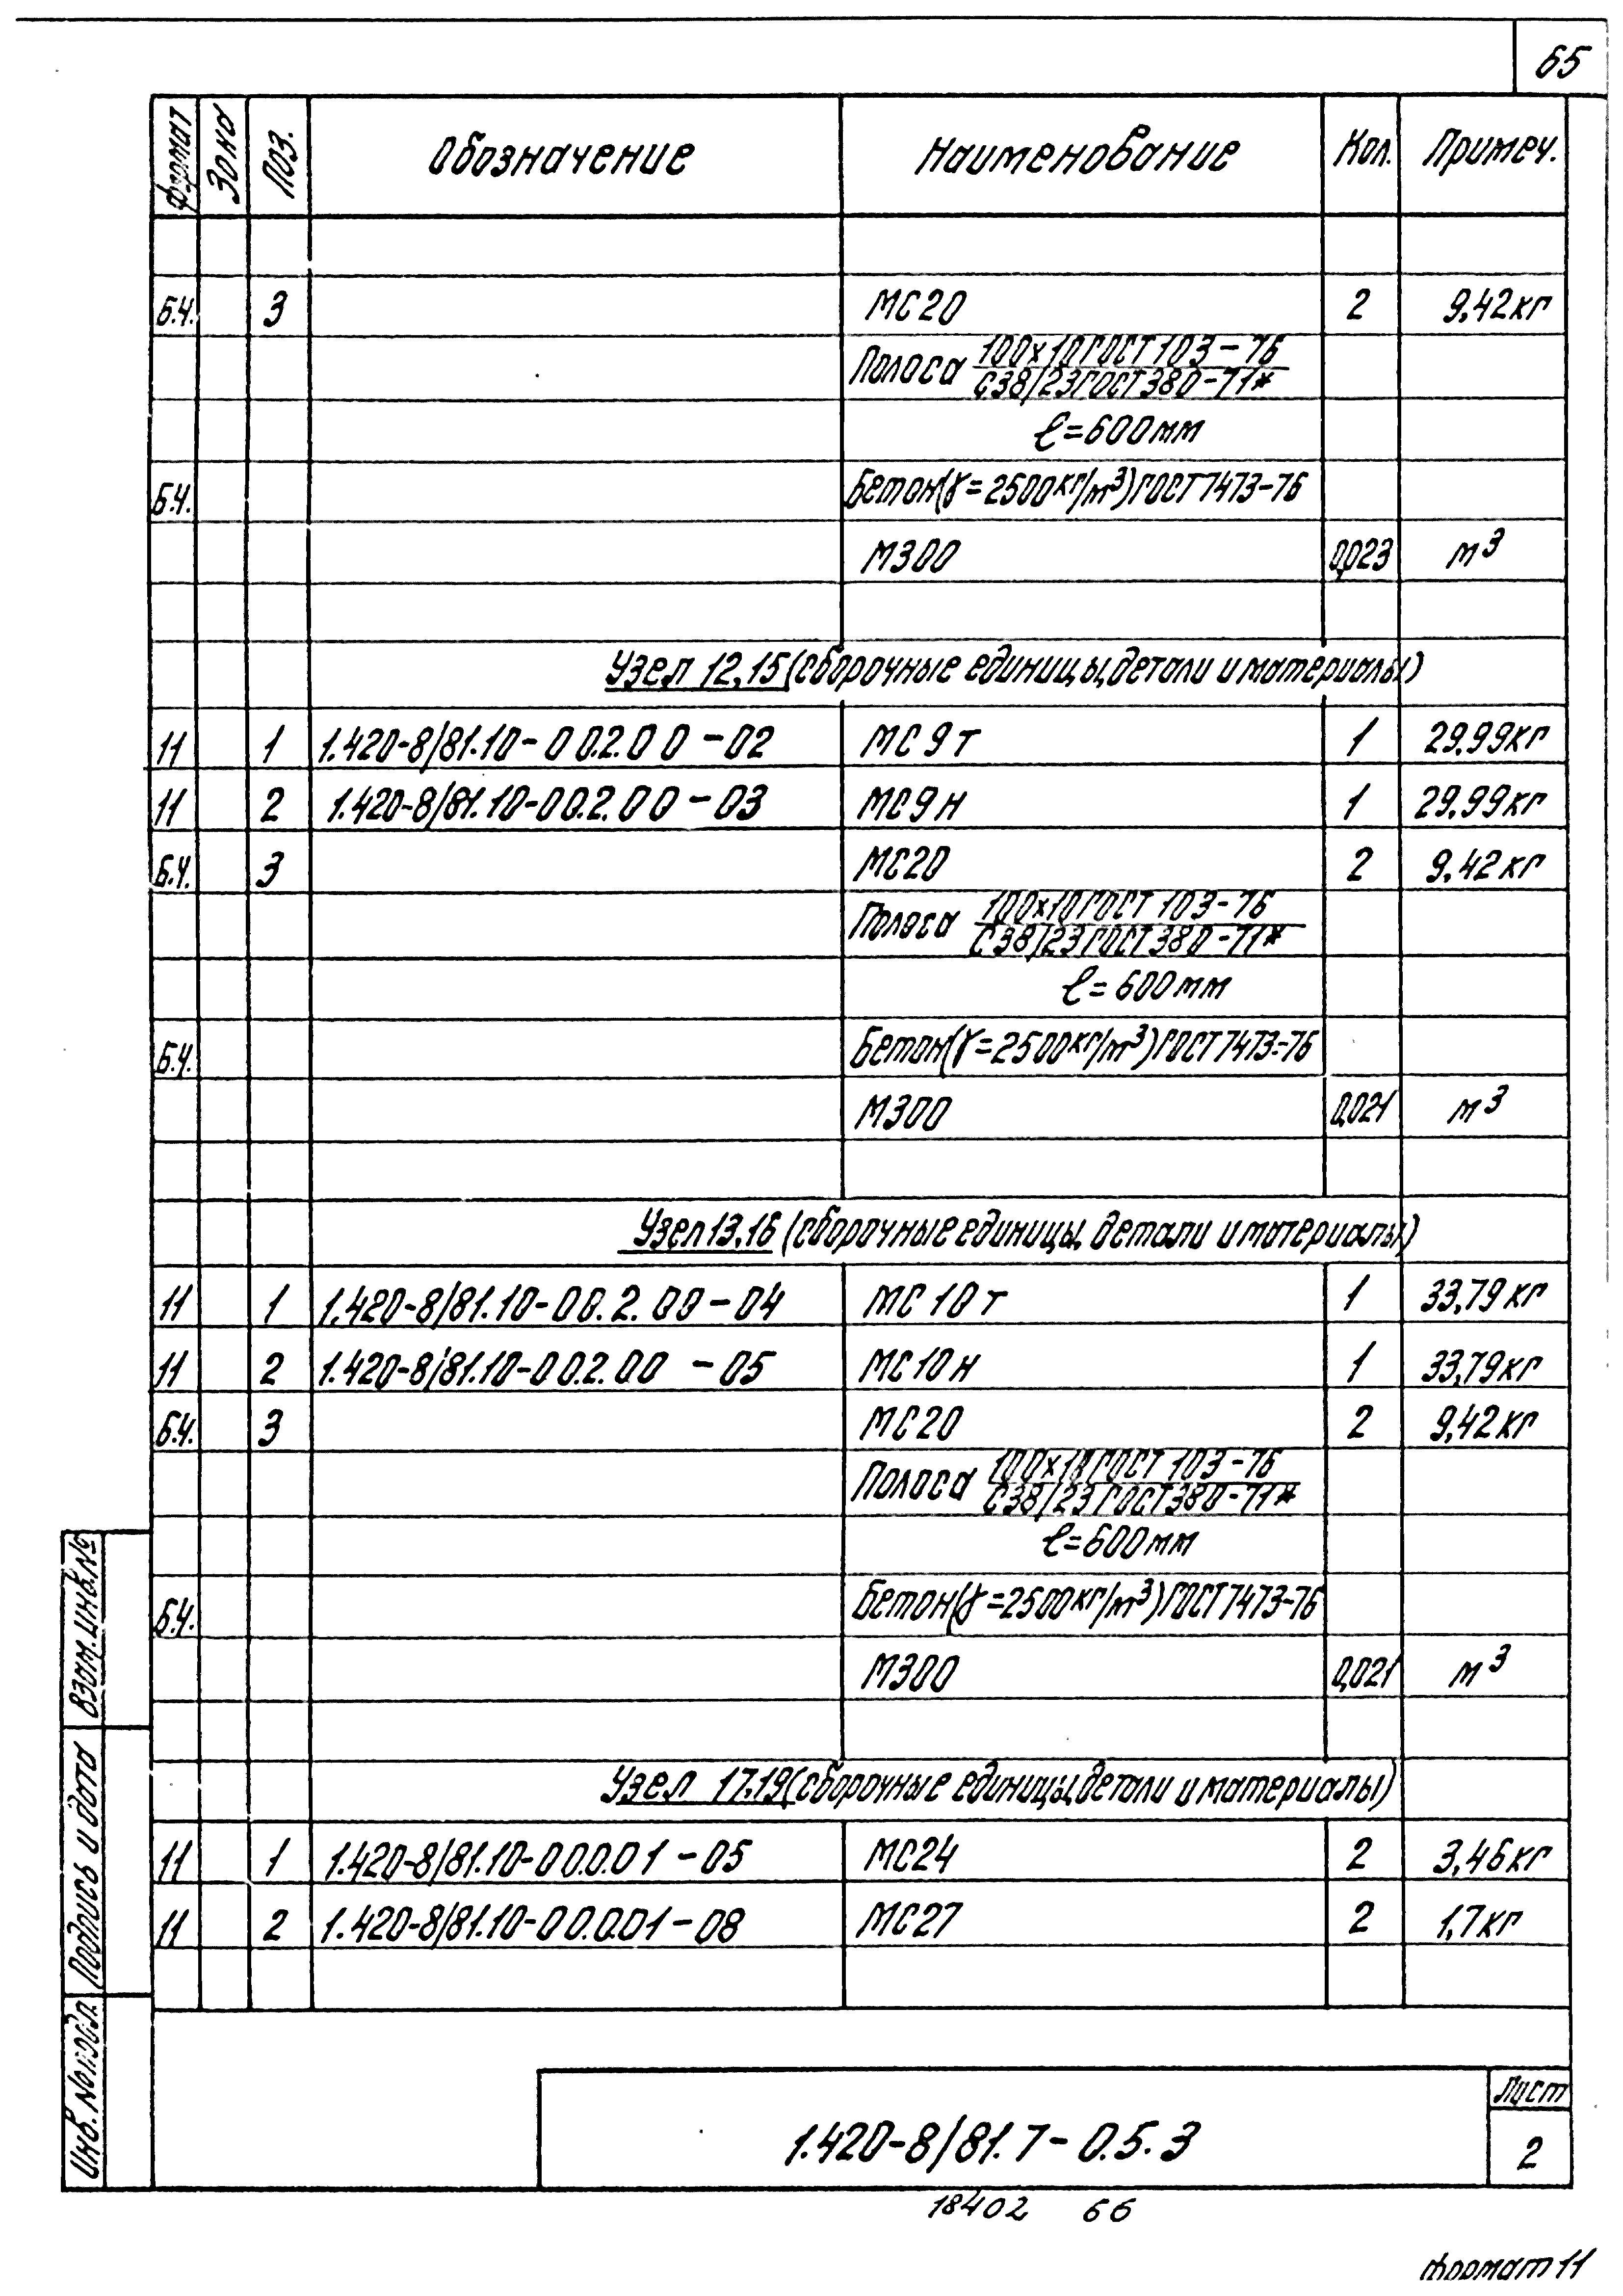 65
Формат Зона Поз. Обозначение Наименование Кол. Примеч.
Б.Ч. 3 МС20 2 9,42кг
Полоса 100х10 ГОСТ 103-76
С38/23 ГОСТ 380-71*
ℓ=600мм
Б.Ч. Бетон(γ=2500кг/м³)ГОСТ7473-76
М300 0,023 м³
Узел 12,15 (сборочные единицы, детали и материалы)
11 1 1.420-8/81.10-00.2.00-02 МС9т 1 29,99кг
11 2 1.420-8/81.10-00.2.00-03 МС9н 1 29,99кг
Б.Ч. 3 МС20 2 9,42кг
Полоса 100х10 ГОСТ 103-76
С38/23 ГОСТ 380-71*
ℓ=600мм
Б.Ч. Бетон(γ=2500кг/м³)ГОСТ7473-76
М300 0,021 м³
Узел 13,16 (сборочные единицы, детали и материалы)
11 1 1.420-8/81.10-00.2.00-04 МС10т 1 33,79кг
11 2 1.420-8/81.10-00.2.00-05 МС10н 1 33,79кг
Б.Ч. 3 МС20 2 9,42кг
Полоса 100х10 ГОСТ 103-76
С38/23 ГОСТ 380-71*
ℓ=600мм
Б.Ч. Бетон(γ=2500кг/м³)ГОСТ7473-76
М300 0,021 м³
Узел 17.19 (сборочные единицы, детали и материалы)
11 1 1.420-8/81.10-00.0.01-05 МС24 2 3,46кг
11 2 1.420-8/81.10-00.0.01-08 МС27 2 1,7кг
Взам. инв. №
Подпись и дата
Инв. № подл.
1.420-8/81.7-0.5.3
Лист
2
18402 66
Формат 11